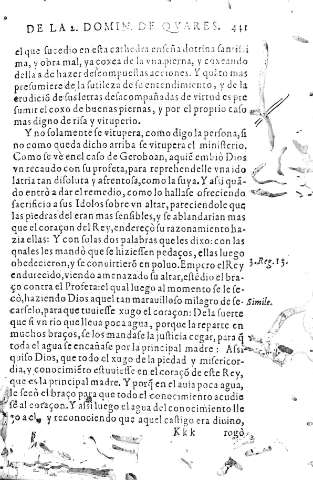 DE LA 2. DOMIN. DE QVARES. 441
el que sucedio en esta cathedra enseña dotrina santissi
ma, y obra mal, ya coxea de la vna pierna, y coxeando
della a de hazer descompuestas acciones. Y quãto mas
presumiere de la sutileza de su entendimiento, y de la
erudiciõ de sus letras desacompañadas de virtud es pre
sumir el coxo de buenas piernas, y por el propio caso
mas digno de risa y vituperio.
Y no solamente se vitupera, como digo la persona, si
no como queda dicho arriba se vitupera el ministerio.
Como se vè en el caso de Geroboan, aquiẽ embiò Dios
vn recaudo con su profeta, para reprehendelle vna ido
latria tan disoluta y afrentosa, como la suya. Y assi quã
do entrò a dar el remedio, como lo hallase ofreciendo
sacrificio a sus Idolos sobre vn altar, pareciendole que
las piedras del eran mas sensibles, y se ablandarian mas
que el coraçon del Rey, endereçò su razonamiento ha
zia ellas: Y con solas dos palabras que les dixo: con las
quales les mandò que se hiziessen pedaços, ellas luego
obedecieron, y se conuirtierõ en poluo. Empero el Rey
endurecido, viendo amenazado su altar, estẽdio el bra-
ço contra el Profeta: el qual luego al momento se le se-
cò, haziendo Dios aquel tan marauilloso milagro de se-
carselo, para que tuuiesse xugo el coraçon: De la suerte
que si vn rio que lleua poca agua, porque la reparte en
muchos braços, se los mandase la justicia cegar, para q̃
toda el agua se encañase por la principal madre: Assi
quiso Dios, que todo el xugo de la piedad y misericor-
dia, y conocimiẽto estuuiesse en el coraçõ de este Rey,
que es la principal madre. Y porq̃ en el auia poca agua,
le secò el braço para que todo el conocimiento acudie
se al coraçon. Y assi luego el agua del conocimiento lle
go a el, y reconociendo que aquel castigo era diuino,
Kkk rogò
3. Reg. 13.
Simile.